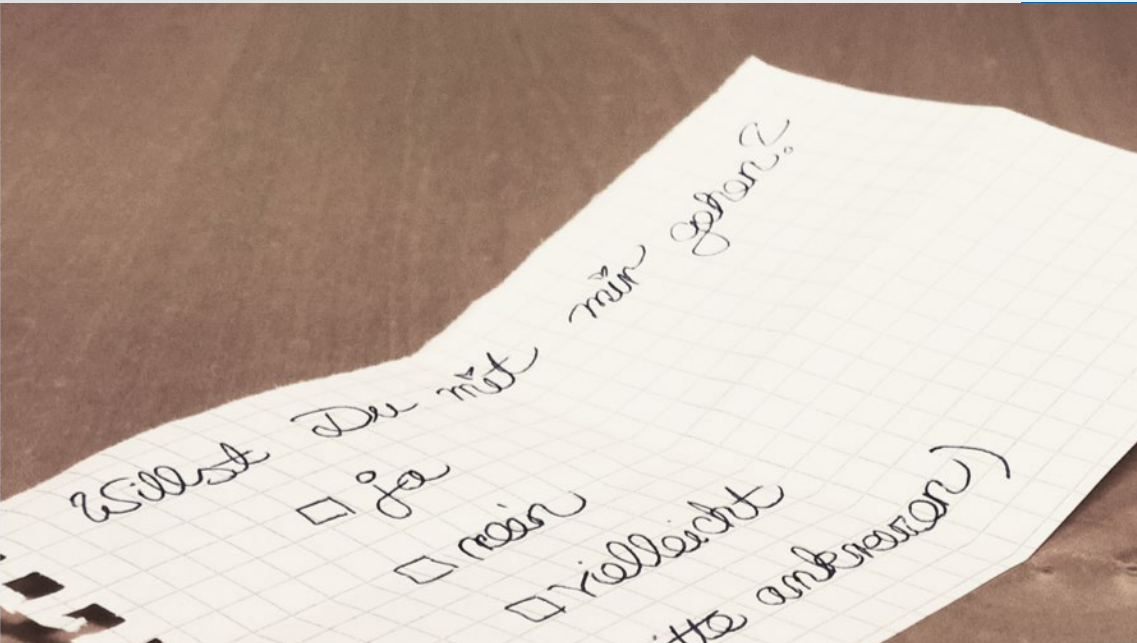 Willst Du mit mir gehen?
☐ ja
☐ nein
☐ vielleicht
ankreuzen)